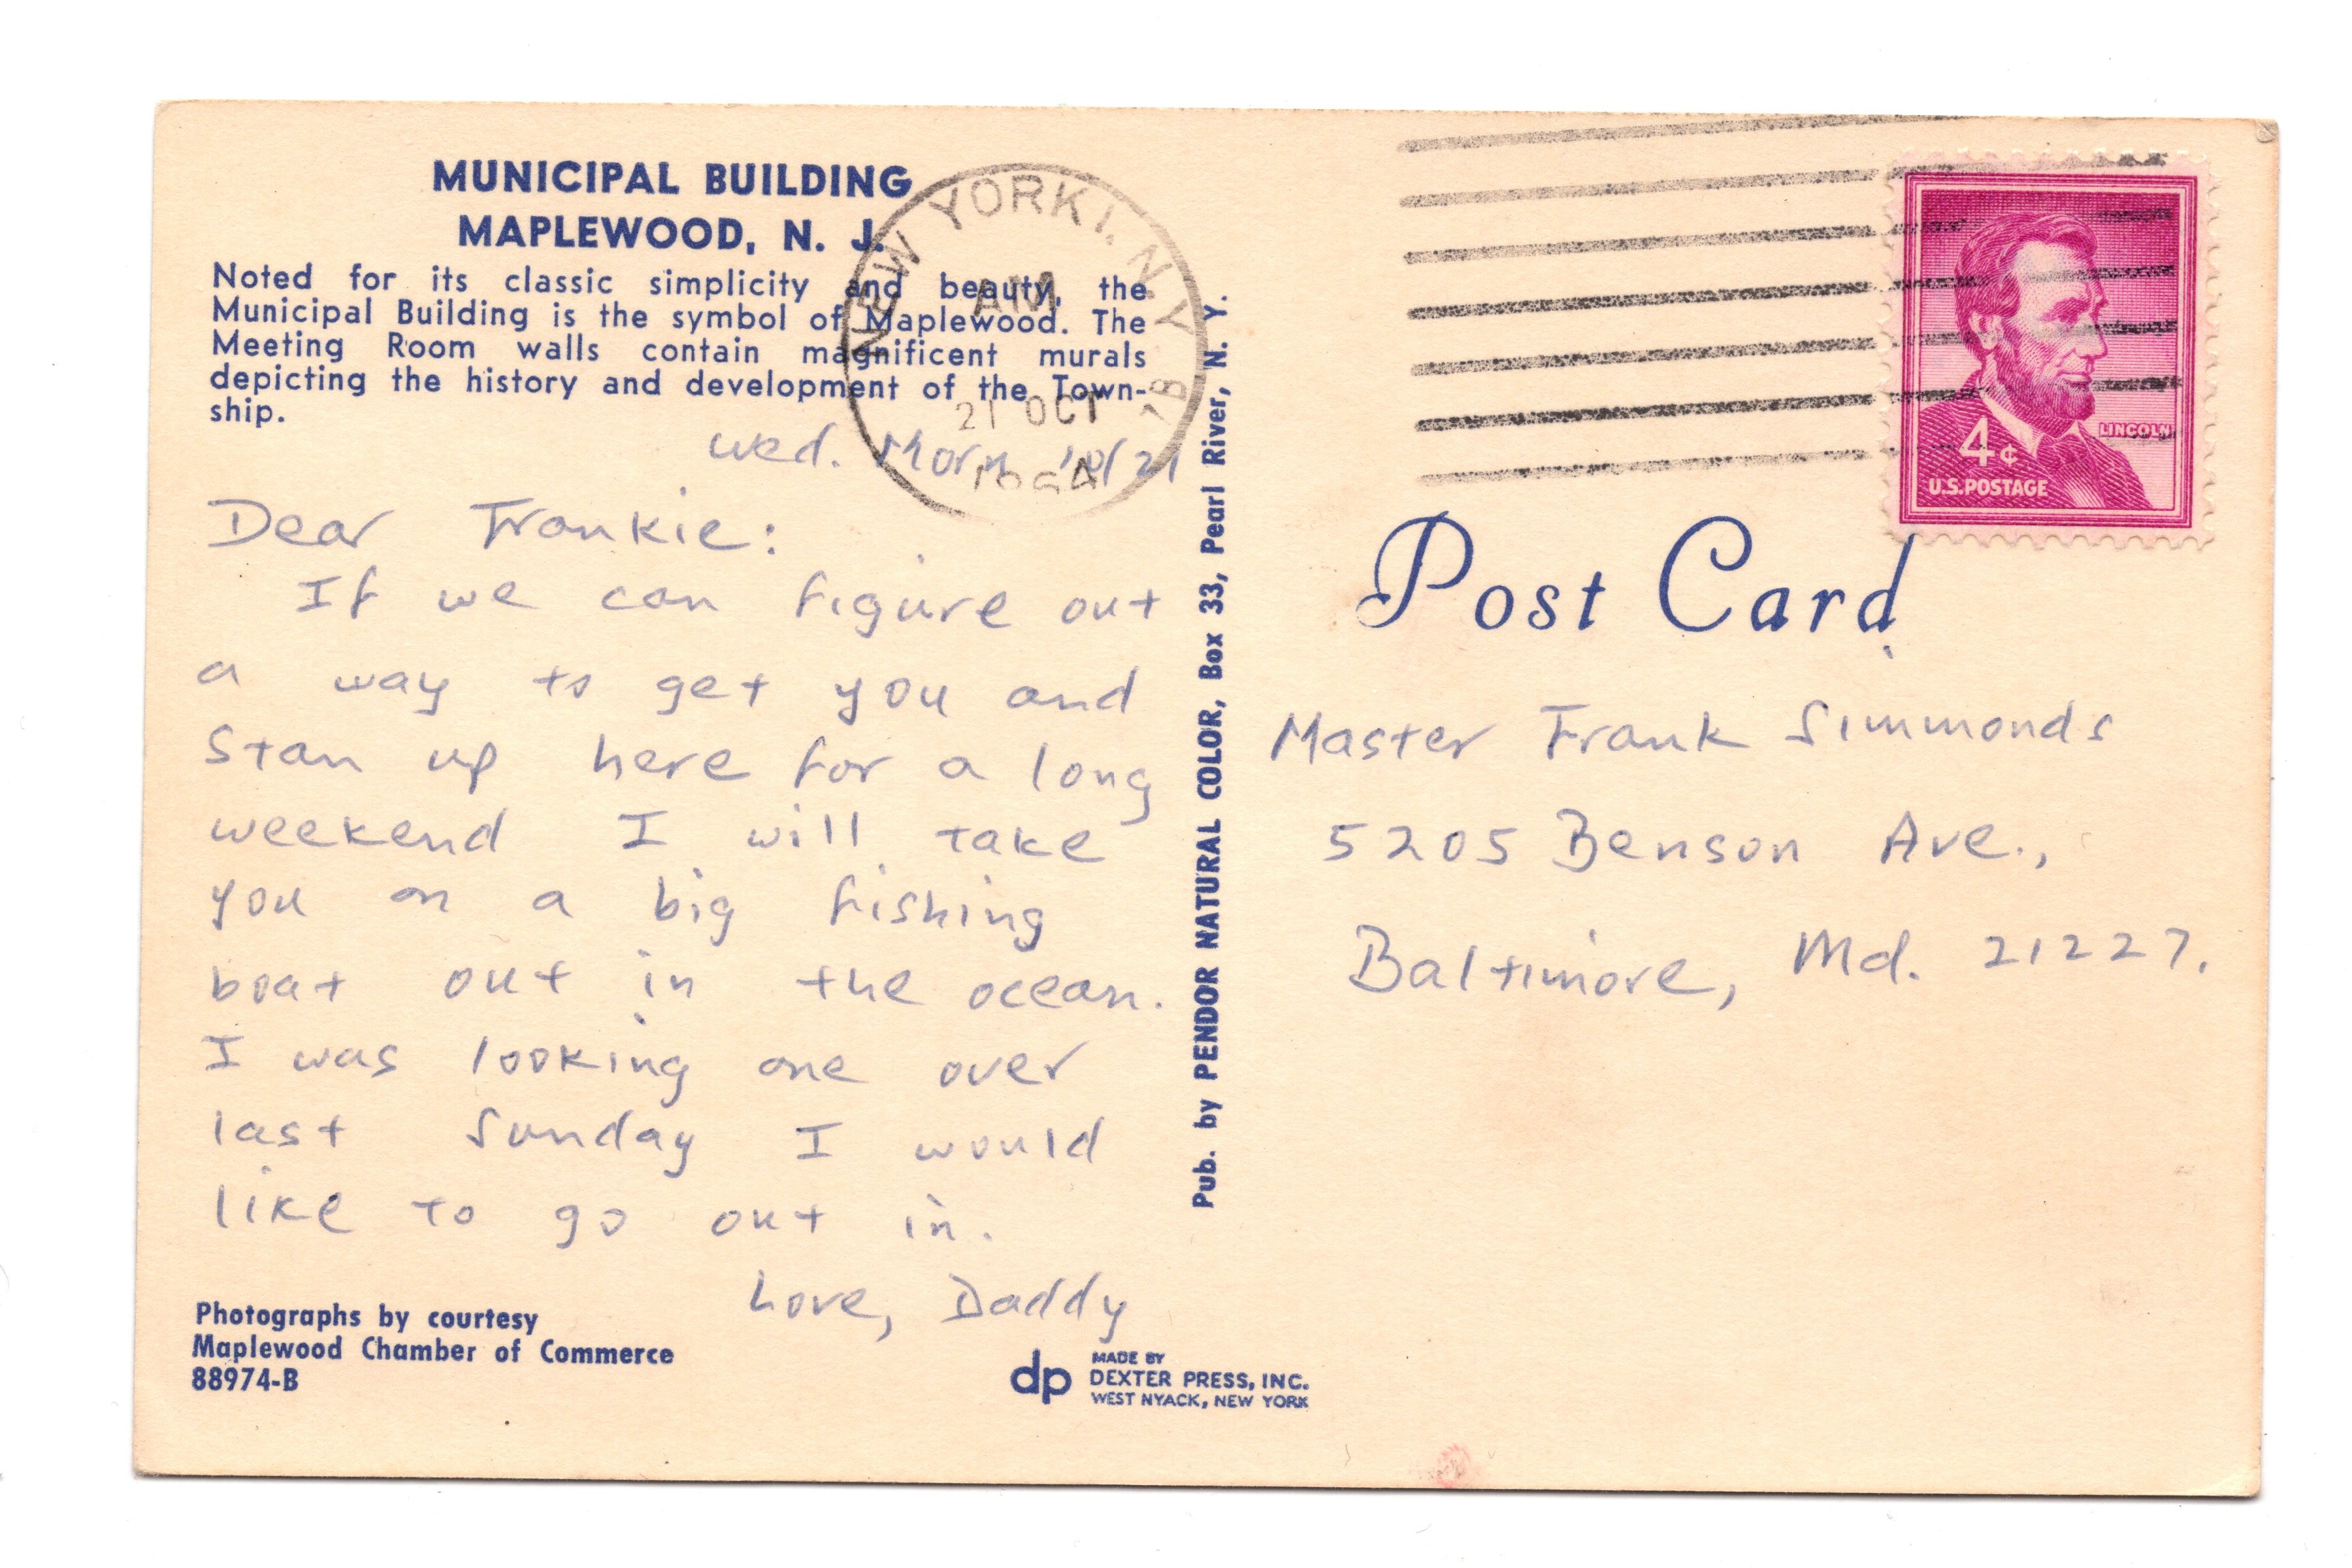 MUNICIPAL BUILDING
MAPLEWOOD, N. J.
Noted for its classic simplicity and beauty, the
Municipal Building is the symbol of Maplewood. The
Meeting Room walls contain magnificent murals
depicting the history and development of the Town-
ship.
Wed. Morn 10/21
Dear Frankie:
If we can figure out
a way to get you and
Stan up here for a long
weekend I will take
you on a big fishing
boat out in the ocean.
I was looking one over
last Sunday I would
like to go out in.
Love, Daddy
Photographs by courtesy
Maplewood Chamber of Commerce
88974-B
dp
MADE BY
DEXTER PRESS, INC.
WEST NYACK, NEW YORK
Pub. by PENDOR NATURAL COLOR, Box 33, Pearl River, N. Y.
NEW YORK 1, N.Y.
AM
21 OCT
1964
LINCOLN
4¢
U.S. POSTAGE
Post Card
Master Frank Simmonds
5205 Benson Ave.,
Baltimore, Md. 21227.